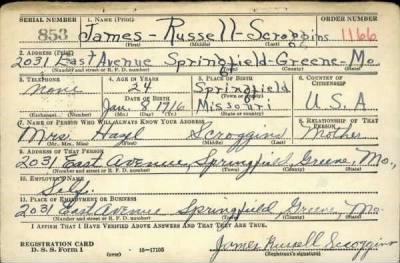 SERIAL NUMBER 1. NAME (Print) ORDER NUMBER
853 James - Russell - Scroggins 1166
(First) (Middle) (Last)
2. ADDRESS (Print)
2031 East Avenue Springfield - Greene - Mo.
(Number and street or R. F. D. number) (Town) (County) (State)
3. TELEPHONE 4. AGE IN YEARS 5. PLACE OF BIRTH 6. COUNTRY OF CITIZENSHIP
none 24 Springfield
DATE OF BIRTH (Town or county)
Jan. 8 1916 Missouri U.S.A
(Exchange) (Number) (Mo.) (Day) (Yr.) (State or country)
7. NAME OF PERSON WHO WILL ALWAYS KNOW YOUR ADDRESS 8. RELATIONSHIP OF THAT PERSON
Mrs. Scroggins Mother
(Mr., Mrs., Miss) (First) (Middle) (Last)
9. ADDRESS OF THAT PERSON
2031 East Avenue, Springfield, Greene, Mo.,
(Number and street or R. F. D. number) (Town) (County) (State)
10. EMPLOYER'S NAME
Self.
11. PLACE OF EMPLOYMENT OR BUSINESS
2031 East Avenue Springfield Greene Mo.
(Number and street or R. F. D. number) (Town) (County) (State)
I AFFIRM THAT I HAVE VERIFIED ABOVE ANSWERS AND THAT THEY ARE TRUE.
REGISTRATION CARD James Russell Scroggins
D. S. S. Form 1 (over) 16-17105 (Registrant's signature)